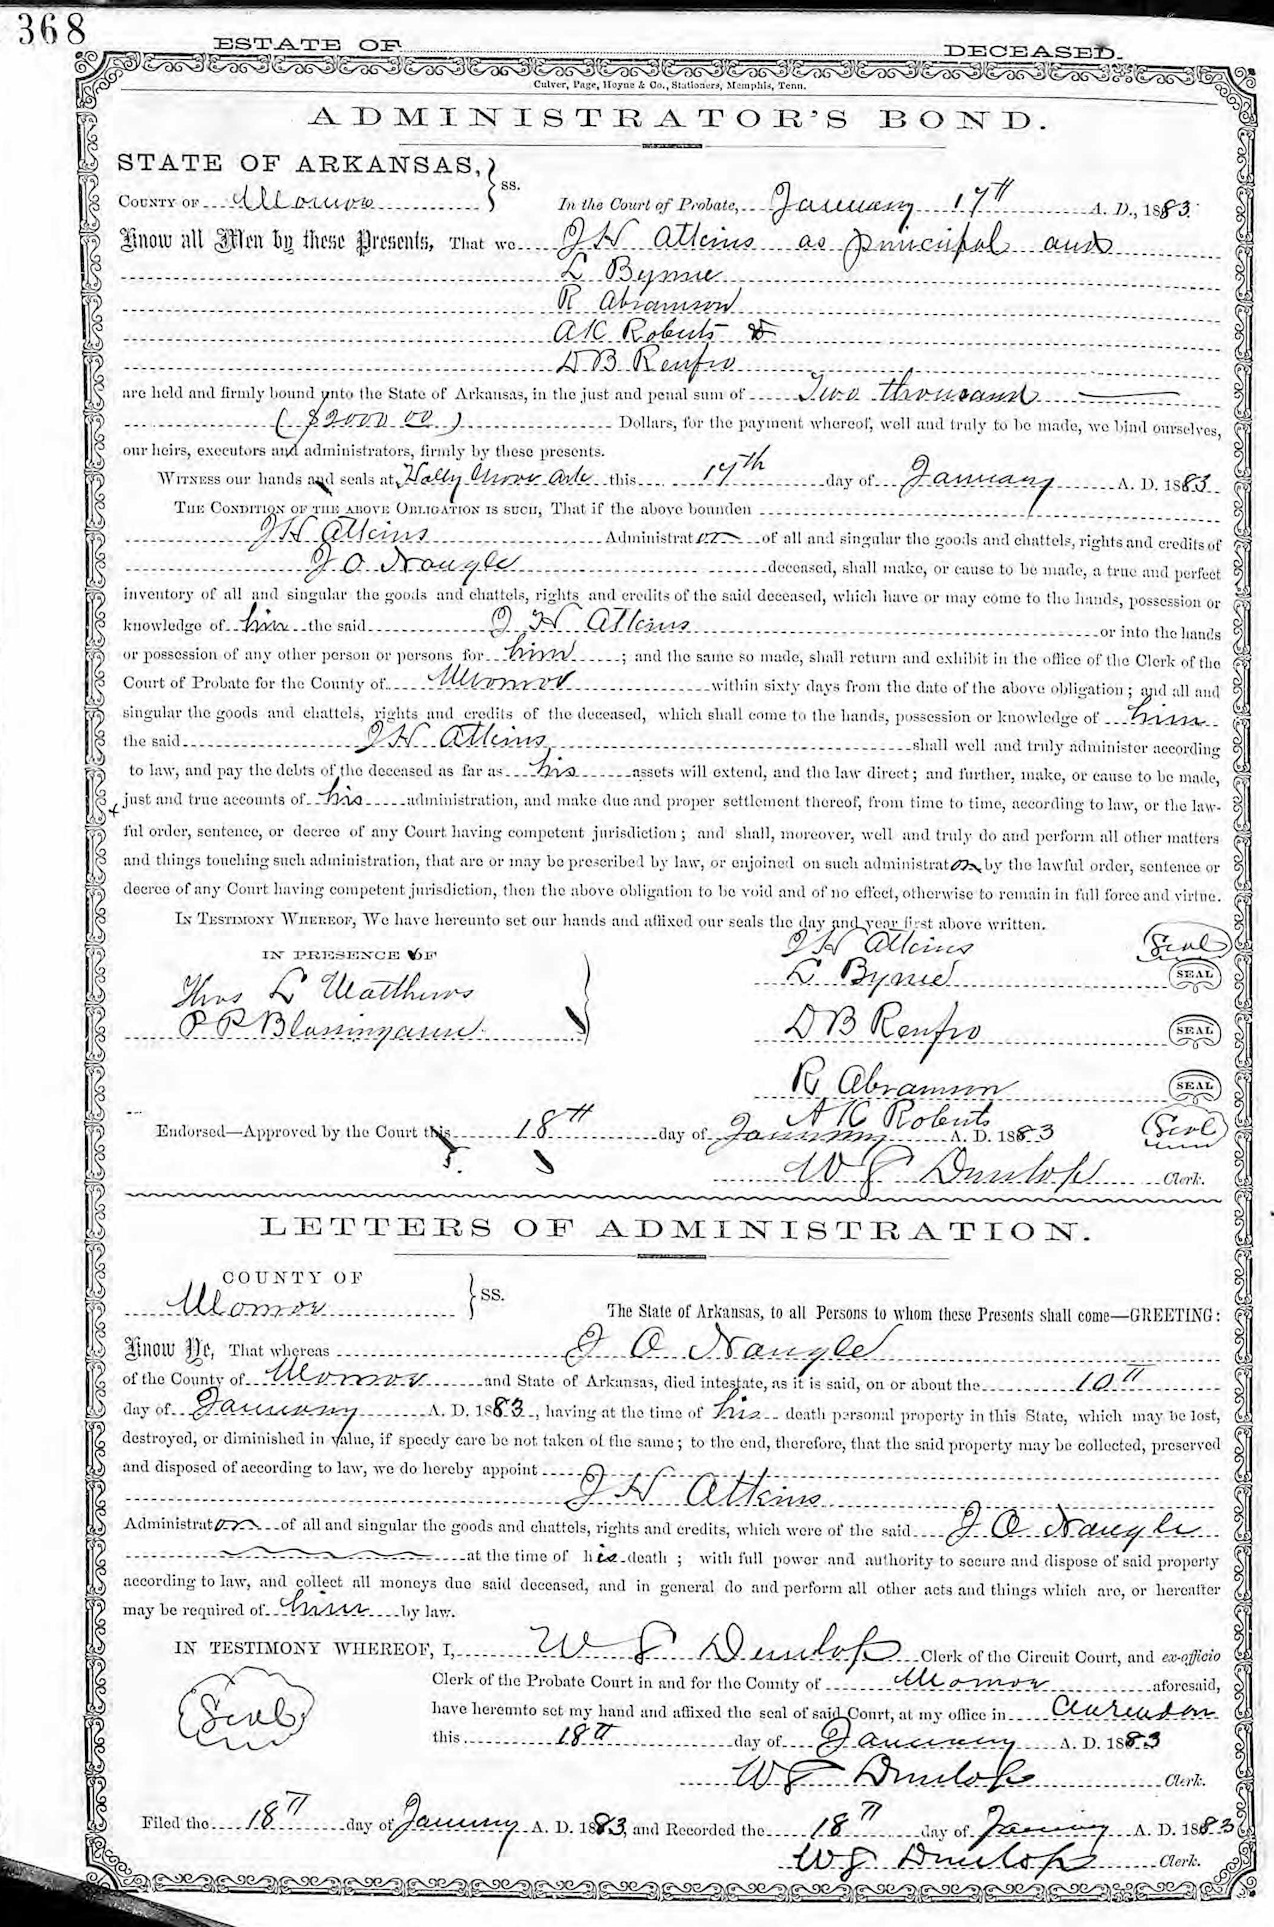 368
ESTATE OF DECEASED.
Culver, Page, Hoyne & Co., Stationers, Memphis, Tenn.
ADMINISTRATOR'S BOND.
STATE OF ARKANSAS, } ss.
COUNTY OF Monroe In the Court of Probate, January 17th A. D., 1883
Know all Men by these Presents, That we J H Atkins as principal and
L Byrne
R Abramson
A K Roberts &
D B Renfro
are held and firmly bound unto the State of Arkansas, in the just and penal sum of Two thousand
($2000 00) Dollars, for the payment whereof, well and truly to be made, we bind ourselves,
our heirs, executors and administrators, firmly by these presents.
WITNESS our hands and seals at Holly Grove Ark this 17th day of January A. D. 1883
THE CONDITION OF THE ABOVE OBLIGATION IS SUCH, That if the above bounden
J H Atkins Administrator of all and singular the goods and chattels, rights and credits of
J O Naugle deceased, shall make, or cause to be made, a true and perfect
inventory of all and singular the goods and chattels, rights and credits of the said deceased, which have or may come to the hands, possession or
knowledge of him the said J H Atkins or into the hands
or possession of any other person or persons for him ; and the same so made, shall return and exhibit in the office of the Clerk of the
Court of Probate for the County of Monroe within sixty days from the date of the above obligation ; and all and
singular the goods and chattels, rights and credits of the deceased, which shall come to the hands, possession or knowledge of him
the said J H Atkins shall well and truly administer according
to law, and pay the debts of the deceased as far as his assets will extend, and the law direct ; and further, make, or cause to be made,
just and true accounts of his administration, and make due and proper settlement thereof, from time to time, according to law, or the law-
ful order, sentence, or decree of any Court having competent jurisdiction ; and shall, moreover, well and truly do and perform all other matters
and things touching such administration, that are or may be prescribed by law, or enjoined on such administrator by the lawful order, sentence or
decree of any Court having competent jurisdiction, then the above obligation to be void and of no effect, otherwise to remain in full force and virtue.
IN TESTIMONY WHEREOF, We have hereunto set our hands and affixed our seals the day and year first above written.
IN PRESENCE OF J H Atkins Seal
Thos L Matthews L Byrne SEAL
P P Blassingame D B Renfro SEAL
R Abramson SEAL
A K Roberts Seal
Endorsed—Approved by the Court this 18th day of January A. D. 1883
W S Dunlop Clerk.
LETTERS OF ADMINISTRATION.
COUNTY OF
Monroe } SS. The State of Arkansas, to all Persons to whom these Presents shall come—GREETING:
Know Ye, That whereas J O Naugle
of the County of Monroe and State of Arkansas, died intestate, as it is said, on or about the 10th
day of January A. D. 1883, having at the time of his death personal property in this State, which may be lost,
destroyed, or diminished in value, if speedy care be not taken of the same ; to the end, therefore, that the said property may be collected, preserved
and disposed of according to law, we do hereby appoint
J H Atkins
Administrator of all and singular the goods and chattels, rights and credits, which were of the said J O Naugle
at the time of his death ; with full power and authority to secure and dispose of said property
according to law, and collect all moneys due said deceased, and in general do and perform all other acts and things which are, or hereafter
may be required of him by law.
IN TESTIMONY WHEREOF, I, W S Dunlop Clerk of the Circuit Court, and ex-officio
Clerk of the Probate Court in and for the County of Monroe aforesaid,
Seal
have hereunto set my hand and affixed the seal of said Court, at my office in Clarendon
this 18th day of January A. D. 1883
W S Dunlop Clerk.
Filed the 18th day of January A. D. 1883, and Recorded the 18th day of January A. D. 1883
W S Dunlop Clerk.